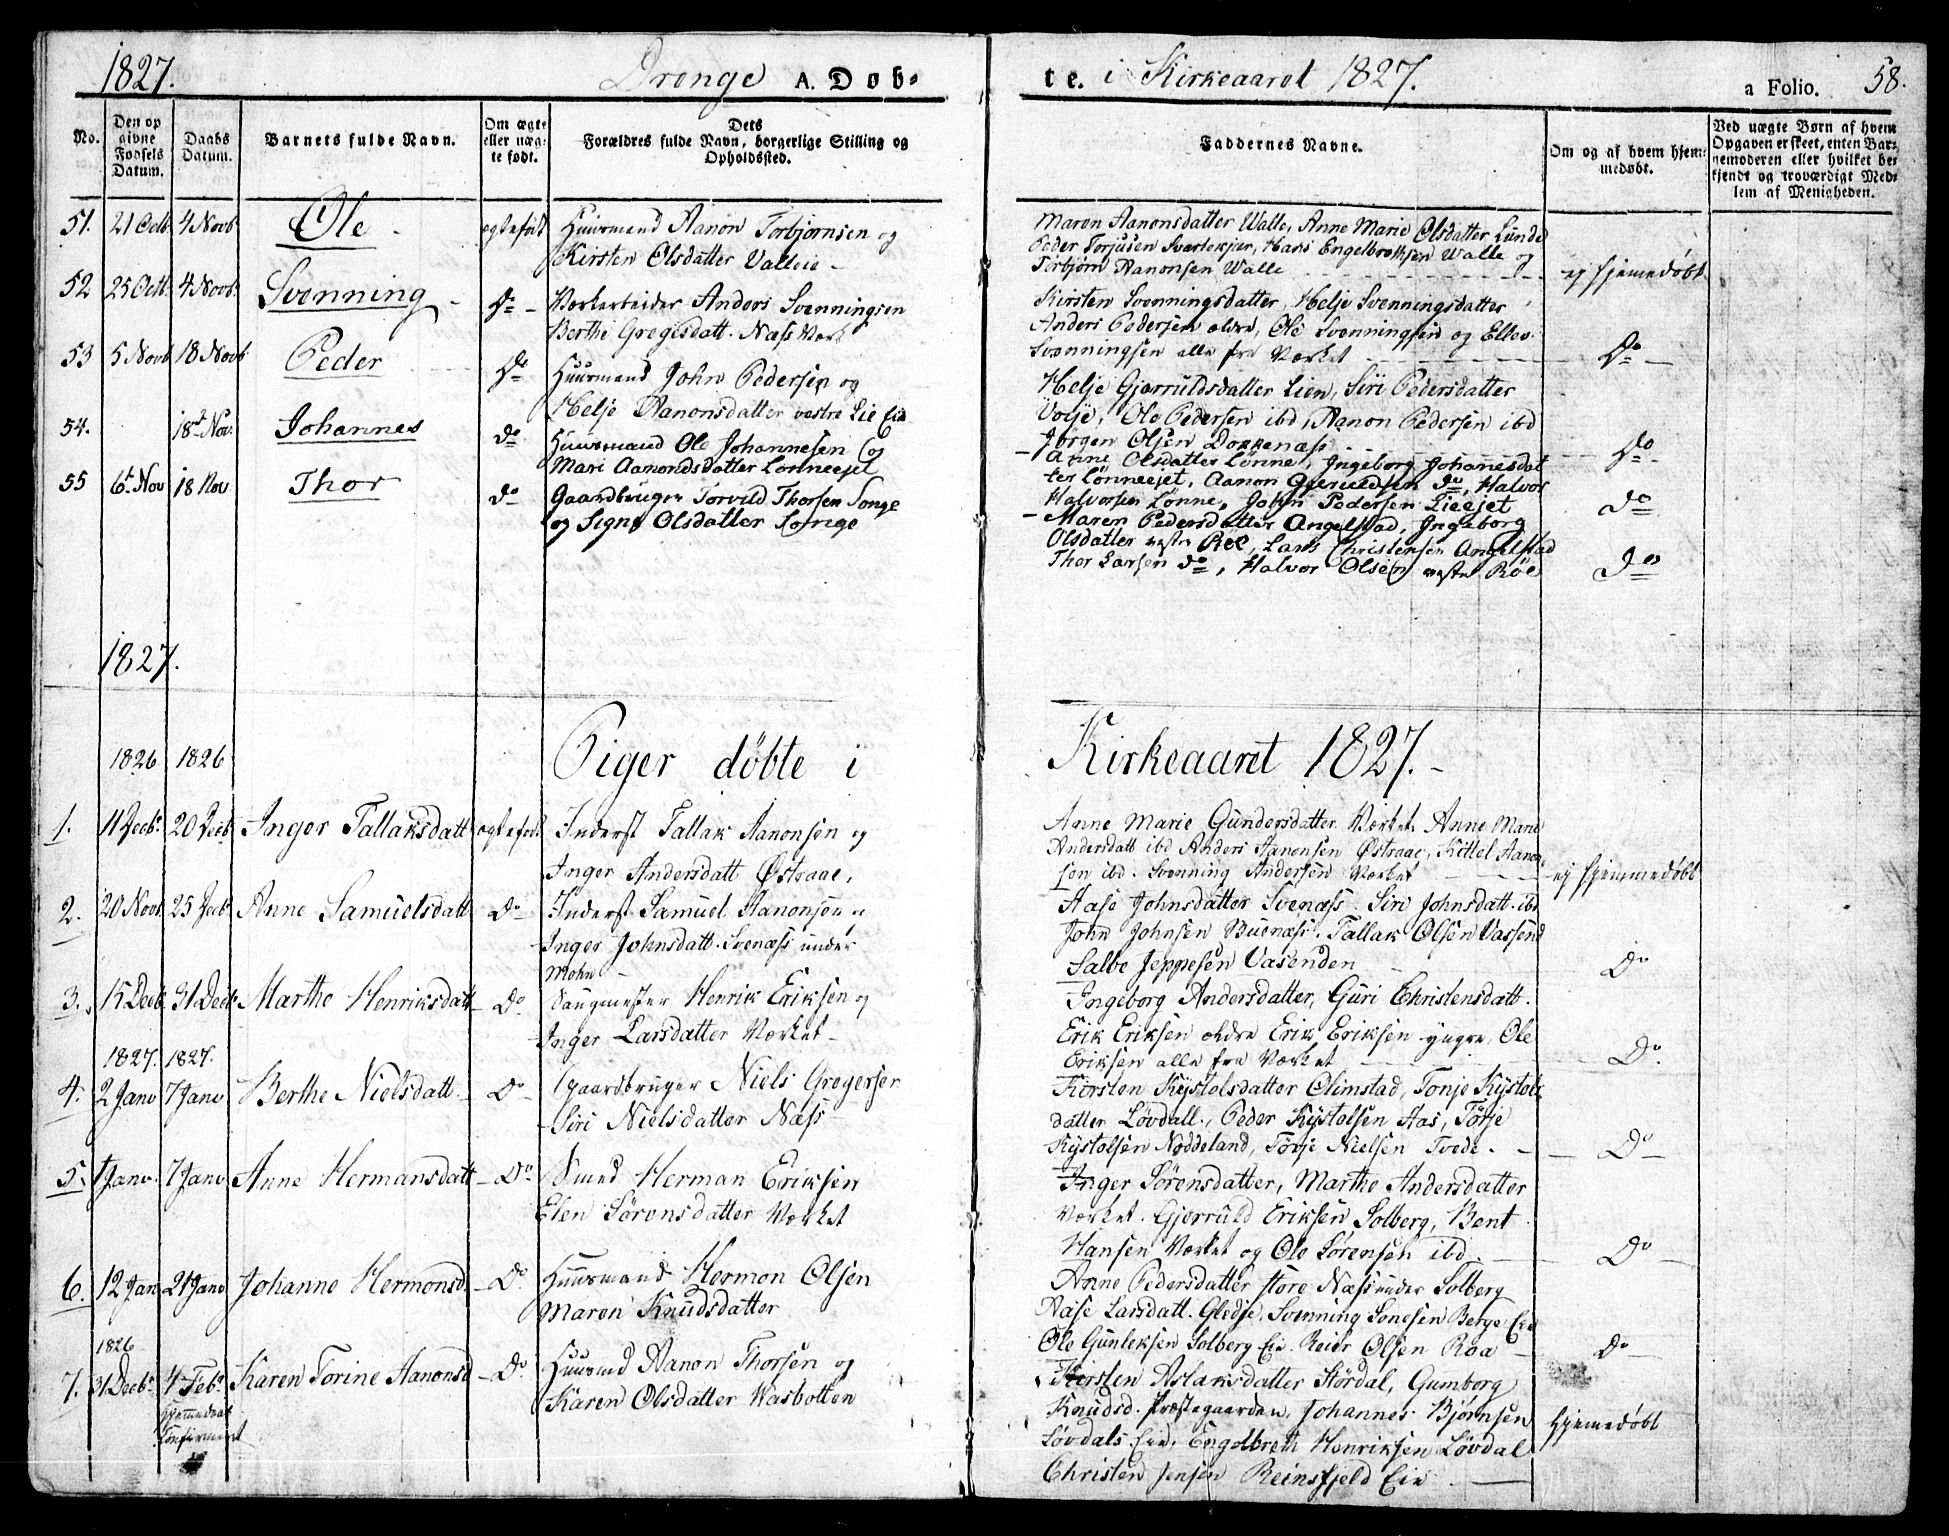 1827. Drenge A. Døb- te. i Kirkeaaret 1827. a Folio. 58.
No.
Den op
givne
Fødsels
Datum.
Daabs
Datum.
Barnets fulde Navn.
Om ægte
eller uæg-
te født.
Dets
Forældres fulde Navn, borgerlige Stilling og
Opholdssted.
Faddernes Navne.
Om og af hvem hjem-
medøbt.
Ved uægte Børn af hvem
Opgaven er skeet, enten Bar-
nemoderen eller hvilket be-
kjendt og troværdigt Med-
lem af Menigheden.
51. 21 Octb 4 Novb Ole - ægtefødt Huusmand Aanon Torbjørnsen og
Kirsten Olsdatter Valleie -
Maren Aanonsdatter Walle, Anne Marie Olsdatter Lunde
Peder Torjusen Svartekjær, Hans Engelbrethsen Walle og
Torbjørn Aanonsen Walle
ej hjemedøbt
52 25 Octb 4 Novb. Svenning - Do - Værkarbeider Anders Svenningsen
Berthe Gregesdatt. Næss Værk
Kirsten Svenningsdatter, Helje Svenningsdatter
Anders Pedersen ældre, Ole Svenningsen og Ellev
Svenningsen alle fra Værket
Do
53 5 Novb 18 Novb Peder Do Huusmand John Pedersen og
Helje Aanonsdatter vestre Lie Eie
Helje Gjeruldsdatter Lien, Siri Pedersdatter
Voxje, Ole Pedersen ibd, Aanon Pedersen ibd
Jørgen Olsen Dokkenæss
Do
54. 18d Nov. Johannes do Huusmand Ole Johannesen og
Mari Aamondsdatter Lonneejet
Anne Olsdatter Lønne, Ingeborg Johannesdat
ter Lønneejet, Aanon do, Halvor
Halvorsen Lønne, John Pedersen Lieejet
do
55 6t Nov 18 Nov Thor do Gaardbruger Torvild Thorsen Songe
og Signe Olsdatter Songe
Maren Pedersdatter Angelstad, Ingeborg
Olsdatter vestre Röe, Lars Christensen Angelstad
Thor Larsen do, Halvor Olsen vestre Röe
Do
1827.
1826 1826 Piger døbte i Kirkeaaret 1827. -
1. 11 Decbr. 20 Decb Inger Tallaksdatt ægtefødt Inderst Tallak Aanonsen og
Inger Andersdatt Østraae,
Anne Marie Gundersdatter Værket, Anne Marie
Andersdatt ibd Anders Aanonsen Østraae, Kittel Aanon
sen ibd. Svenning Andersen Værket
ej hjemmedøbt
2. 20 Novb. 25 Decb Anne Samuelsdatt Do Inderst Samuel Aanonsen og
Inger Johnsdatt. Svenæss under
Mohn
Aase Johnsdatter Svenæss. Siri Johnsdatt. ibd
John Johnsen Buenæss. Tallak Olsen Vassend
Salve Jeppesen Vasenden
Do
3. 15 Decb 31 Decb Marthe Henriksdatt Do. Saugmester Henrik Eriksen og
Inger Larsdatter Værket -
Ingeborg Andersdatter, Guri Christensdatt.
Erik Eriksen ældre Erik Eriksen yngre, Ole
Eriksen alle fra Værket
Do.
1827. 1827.
4. 2 Janv 7 Janv Berthe Nielsdatt Do Gaardbruger Niels Gregersen
Siri Nielsdatter Næss
Kirsten Kystolsdatter Olimstad, Tonje Kystols
datter Løvdall, Peder Kystolsen Aas, Tørje
Kystolsen Nøddeland, Tørje Nielsen Tvede. -
Do
5. 1 Janv. 7 Janv Anne Hermansdatt Do Smed Herman Eriksen
Elen Sørensdatter Værket
Inger Sørensdatter, Marthe Andersdatter
Værket. Gjerruld Eriksen Solberg, Bent
Hansen Værket og Ole Sørensen ibd.
Do
6. 12 Jan 21 Janv Johanne Hermonsd. Do. Huusmand Hermon Olsen
Maren Knudsdatter
Anne Pedersdatter store Næss under Solberg
Aase Larsdatt. Gledje, Svenning Sonesen Berge Eie
Ole Gunleksen Solberg Eie. Reier Olsen Roa
Do
1826
7. 31 Decbr. 4 Febr. Karen Torine Aanonsd Do. Huusmd Aanon Thorsen og
Karen Olsdatter Wasbotten
Hjemmedøbt
Confirmeret
Kirsten Aslaksdatter Stördal, Gumborg
Knudsd. Præstegaarden, Johannes Bjørnsen
Løvdals Eie, Engelbreth Henriksen Løvdal
Christen Jensen Reinsfjeld Eie
Hjemedøbt